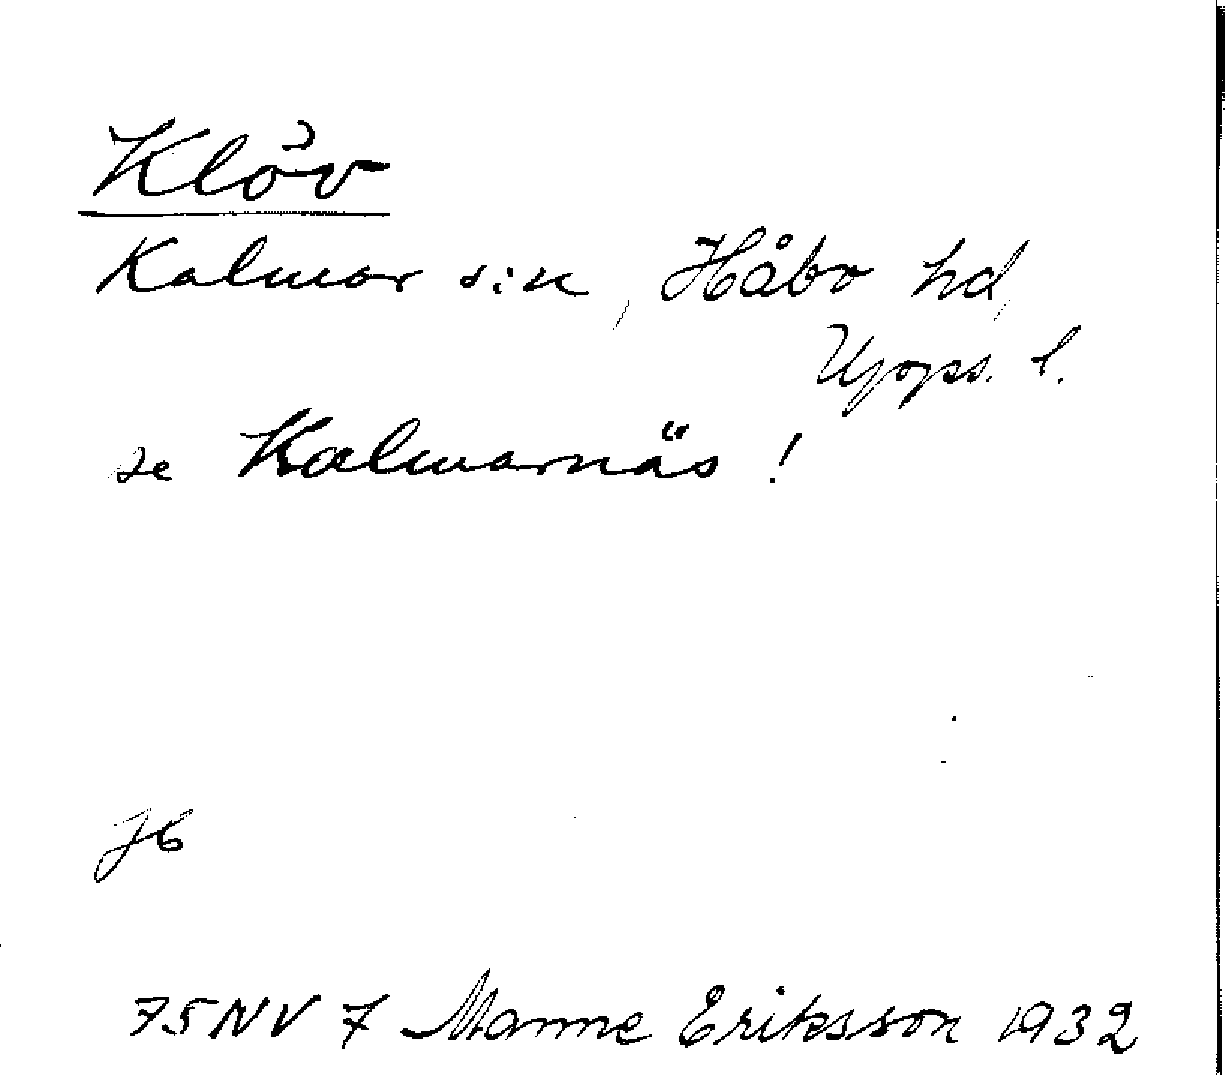 Klöv
Kalmar s:n, Håbo hd,
Upps. l.
se Kalmarnäs !
75 NV 7 Manne Eriksson 1932